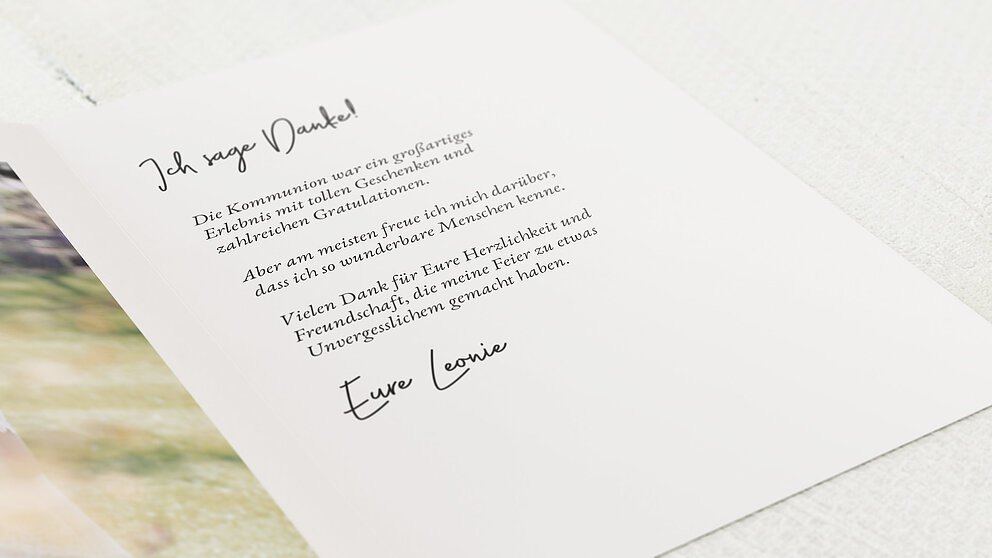 Ich sage Danke!
Die Kommunion war ein großartiges
Erlebnis mit tollen Geschenken und
zahlreichen Gratulationen.
Aber am meisten freue ich mich darüber,
dass ich so wunderbare Menschen kenne.
Vielen Dank für Eure Herzlichkeit und
Freundschaft, die meine Feier zu etwas
Unvergesslichem gemacht haben.
Eure Leonie